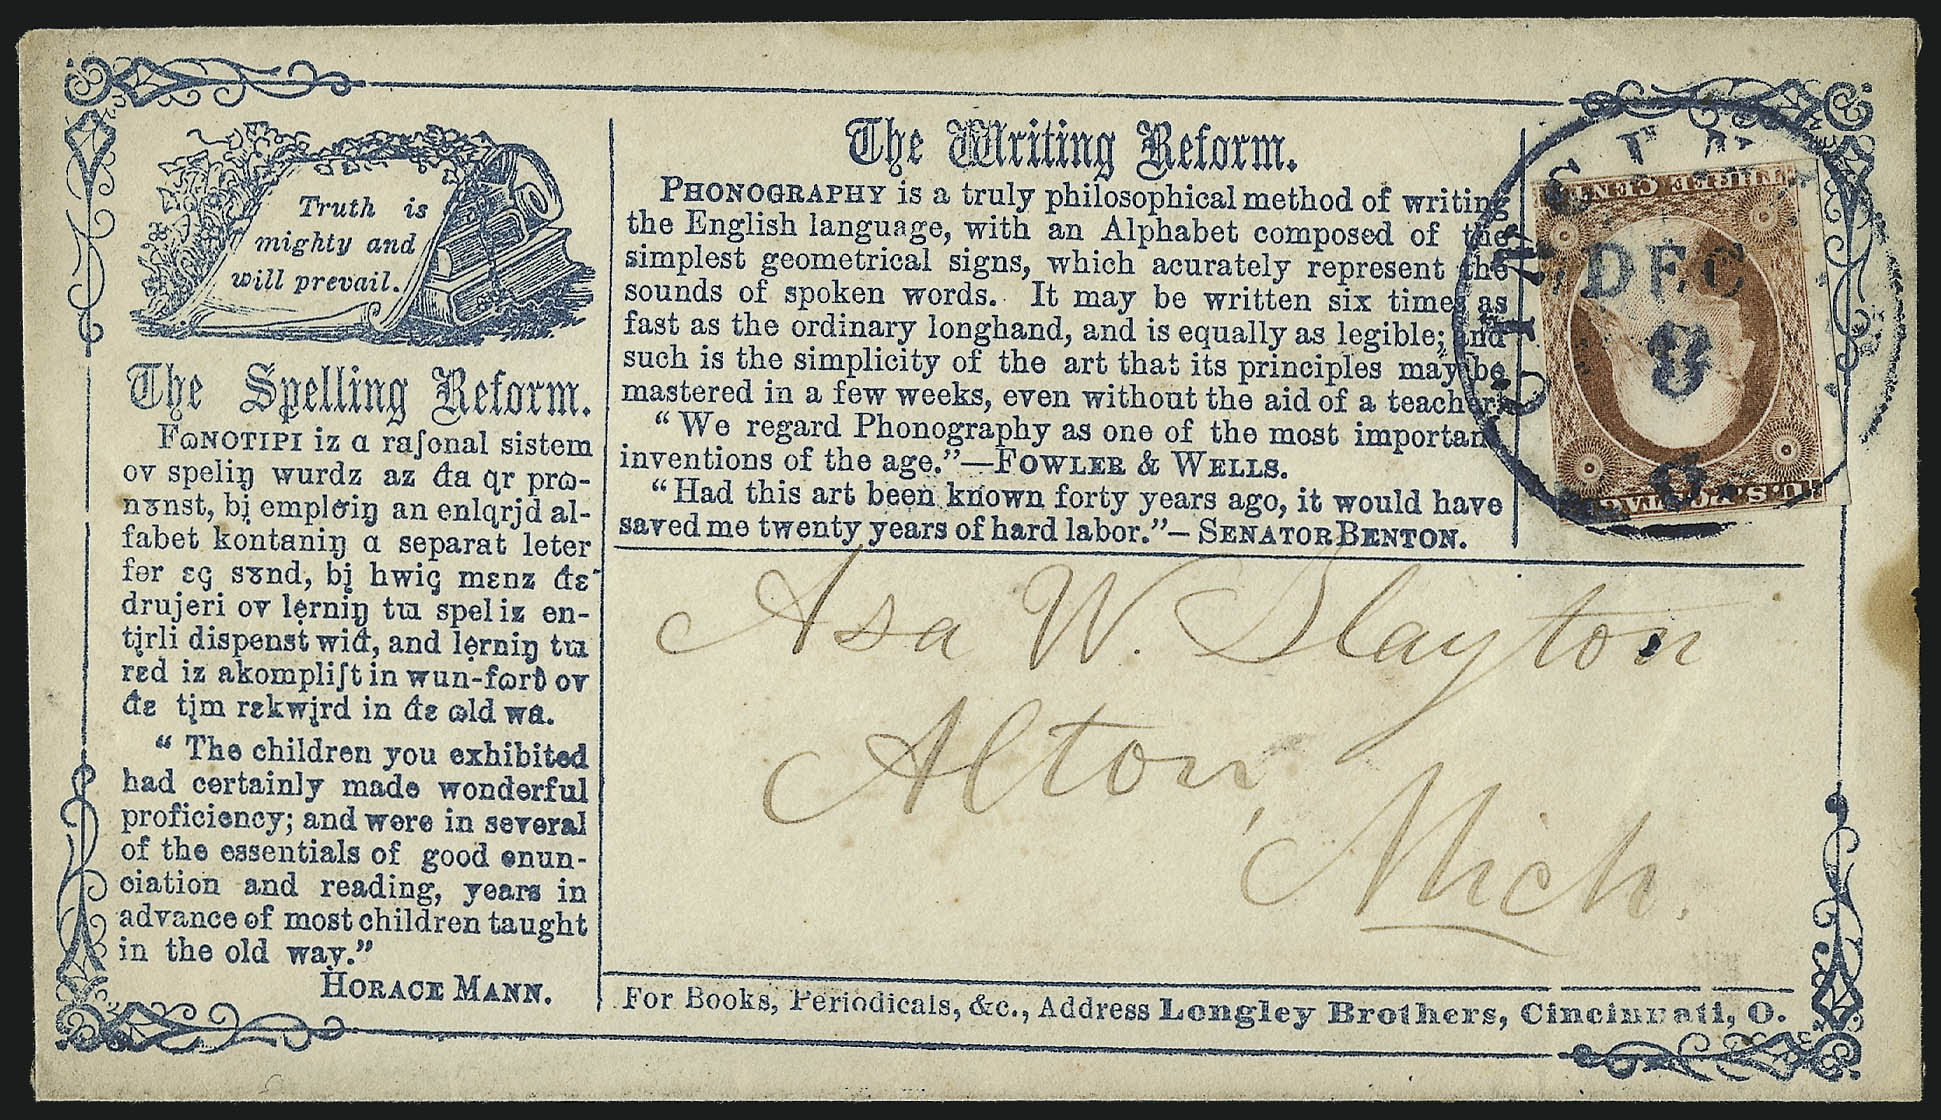 Truth is
mighty and
will prevail.
The Spelling Reform.
Fɷnotipi iz ɑ raʃonal sistem
ov speliŋ wurdz az đa qr prɷ-
nȣnst, bį emplơiŋ an enlqrjd al-
fabet kontaniŋ ɑ separat leter
fơr ɛç sȣnd, bį hwiç mɛnz đɛ
drujeri ov lẹrniŋ tɯ spel iz en-
tįrli dispenst wiđ, and lẹrniŋ tɯ
rɛd iz akompliʃt in wun-fɷrƀ ov
đɛ tįm rɛkwįrd in đɛ ɷld wa.
“ The children you exhibited
had certainly made wonderful
proficiency; and were in several
of the essentials of good enun-
ciation and reading, years in
advance of most children taught
in the old way.”
Horace Mann.
The Writing Reform.
Phonography is a truly philosophical method of writing
the English language, with an Alphabet composed of the
simplest geometrical signs, which acurately represent the
sounds of spoken words. It may be written six times as
fast as the ordinary longhand, and is equally as legible; and
such is the simplicity of the art that its principles may be
mastered in a few weeks, even without the aid of a teacher.
“ We regard Phonography as one of the most important
inventions of the age.”—Fowler & Wells.
“Had this art been known forty years ago, it would have
saved me twenty years of hard labor.”—Senator Benton.
THREE CENTS
DEC
8
O.
U.S. POSTAGE
Asa W. Slayton
Alton,
Mich.
For Books, Periodicals, &c., Address Longley Brothers, Cincinnati, O.